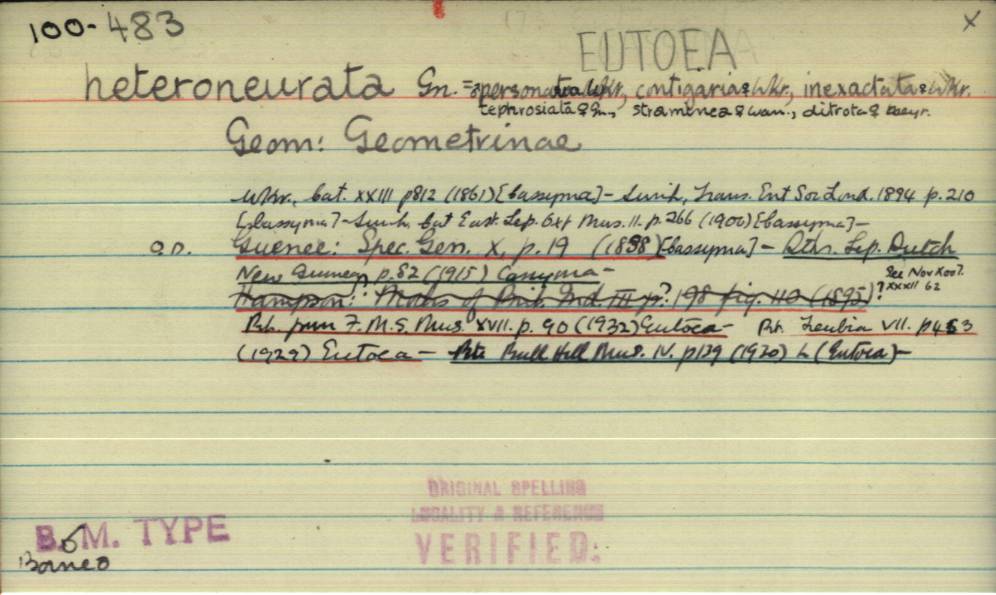 100-483
X
EUTOEA
heteroneurata Gn. = ♂ personata Wkr, contigaria ♀ Wkr., inexactata ♀ Wkr.
tephrosiata ♀ Gn., straminea ♀ Warr., ditrota ♀ Meyr.
Geom: Geometrinae
Wkr., Cat. XXIII p812 (1861) [Cassyma] - Swinh, Trans. Ent Soc Lond. 1894 p.210
[Cassyma] - Swinh. Cat East. Lep. Oxf Mus. II. p.266 (1900) [Cassyma] -
O.D. Guenee: Spec. Gen. X, p.19 (1858) [Cassyma] - Lep. Dutch
New Guinea p.82 (1915) Cassyma -
See Nov Zool.
XXXII 62
Hampson: Moths of Brit. Ind III p? 198 fig. 110 (1895)?
F.M.S. Mus. XVII. p.90 (1932) Eutoea - Treubia VII. p453
(1929) Eutoea - Bull Hill Mus. IV. p139 (1930) (Eutoea) -
ORIGINAL SPELLING
LOCALITY & REFERENCE
VERIFIED:
B. ♂ M. TYPE
Borneo